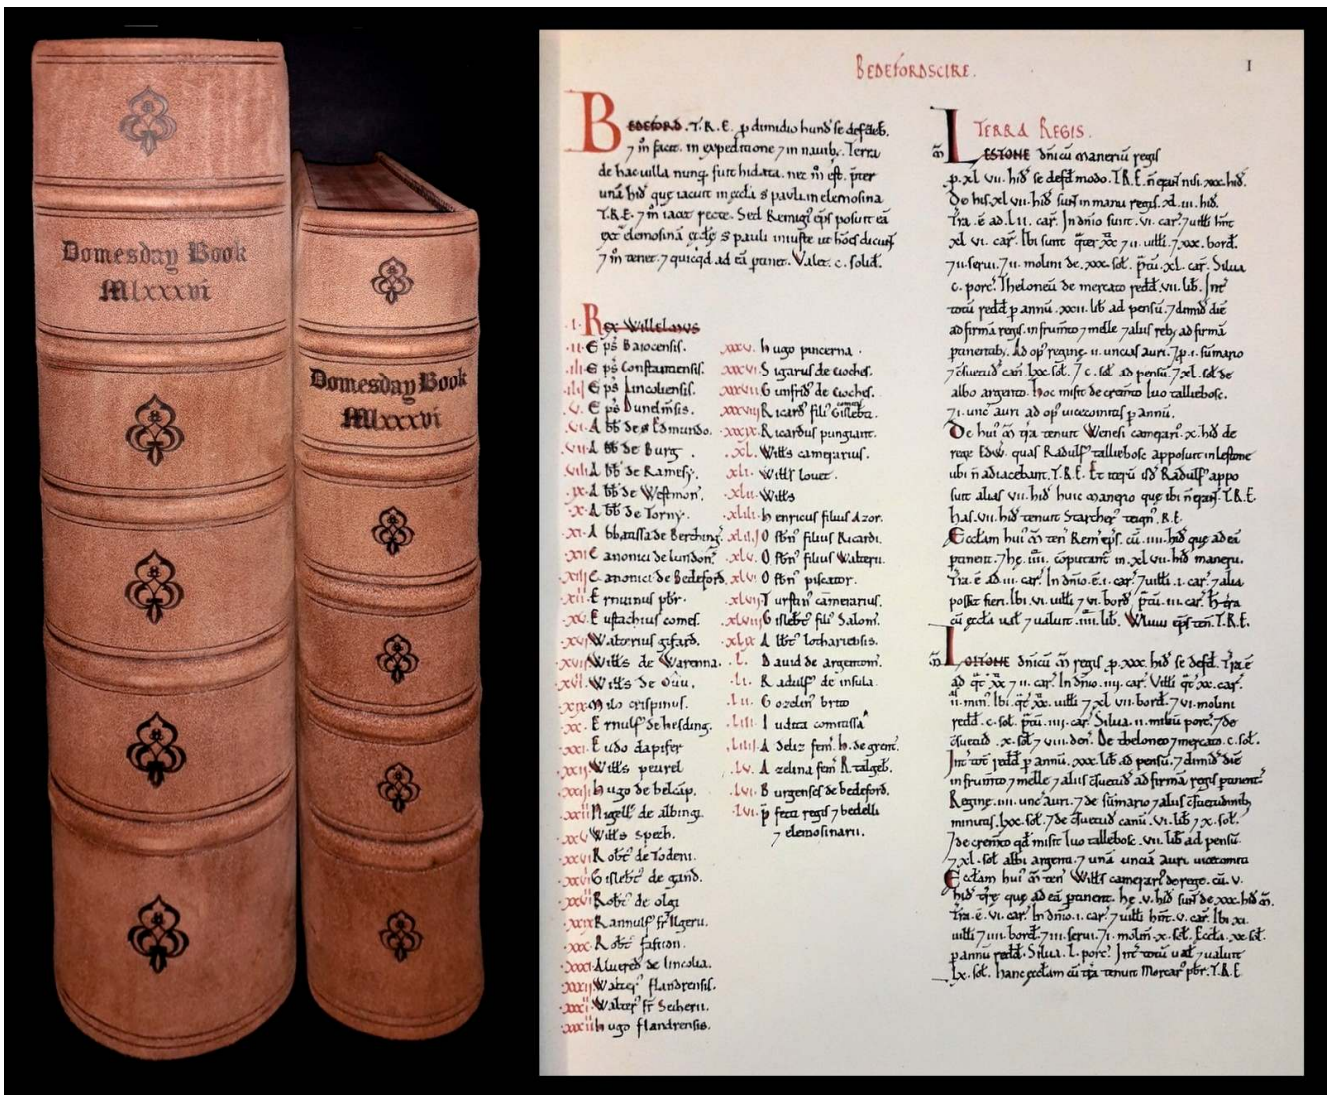 Domesday Book
Mlxxxvi
Domesday Book
Mlxxxvi
BEDEFORDSCIRE.
I
BEDEFORD. T.R.E. p dimidio hund se defdeb.
⁊ m̄ facit. in expeditione ⁊ in nauib;. Terra
de hac uilla nunq̄ fuit hidata. nec m̄ est. p̄ter
unā hid que iacuit in eccla s pauli in elemosina
T.R.E. ⁊ m̄ iacet recte. Sed Remigi' ep̄s posuit eā
ext elemosinā eccłe s pauli iniuste ut hōes dicunt
⁊ m̄ tenet ⁊ quicq̄d ad eā ptinet. Valet. c. solid.
.I. Rex Willelmus
.II. Ep̄s Baiocensis.
.III. Ep̄s Constantiensis.
.IIII. Ep̄s Lincoliensis.
.V. Ep̄s Dunelmsis.
.VI. Abb de s Edmundo.
.VII. Abb de Burg.
.VIII. Abb de Ramesy.
.IX. Abb de Westmon'.
.X. Abb de Torny.
.XI. Abbatissa de Berching'.
.XII. Canonici de Lundon'.
.XIII. Canonici de Bedeford.
.XIIII. Ernuinus pbr.
.XV. Eustachius comes.
.XVI. Walterius gifard.
.XVII. Witts de Warenna.
.XVIII. Witts de Ou.
.XIX. Milo crispinus.
.XX. Ernulf' de hesding.
.XXI. Eudo dapifer
.XXII. Witts peurel
.XXIII. Hugo de belcāp.
.XXIIII. Nigell' de albingi.
.XXV. Witts spech.
.XXVI. Robt' de Todeni.
.XXVII. Gislebt' de gand.
.XXVIII. Robt' de olgi
.XXIX. Rannulf' fr Ilgerii.
.XXX. Robt' fafiton.
.XXXI. Aluered' de lincolia.
.XXXII. Walter' flandrensis.
.XXXIII. Walter' fr Seiherii.
.XXXIIII. Hugo flandrensis.
.XXXV. Hugo pincerna.
.XXXVI. Sigarus de cioches.
.XXXVII. Gunfrid' de cioches.
.XXXVIII. Ricard' fili' Gisleb̄ti comitis
.XXXIX. Ricardus pungiant.
.XL. Witts camerarius.
.XLI. Witts louet.
.XLII. Witts
.XLIII. Henricus filius Azor.
.XLIIII. Osbn' filius Ricardi.
.XLV. Osbn' filius Walterii.
.XLVI. Osbn' piscator.
.XLVII. Turstin' camerarius.
.XLVIII. Gislebt' fili' Salom'.
.XLIX. Albt' lothariensis.
.L. Dauid de argentom'.
.LI. Radulf' de insula.
.LII. Gozelin' brito
.LIII. Iudita comitissa
.LIIII. Adeliz fem' H. de grent'.
.LV. Azelina fem' R. talgeb'.
.LVI. Burgenses de bedeford.
.LVII. p̄fecti regis ⁊ bedelli
⁊ elemosinarii.
TERRA REGIS.
m̄ LESTONE dn̄icū maneriū regis
p. xl vii. hid se defd modo. T.R.E. n̄ erant nisi. xxx. hid.
De his. xl vii. hid sunt in manu regis. xl. iii. hid.
Tra. ē ad. l.ii. car. In dn̄io sunt. vi. car. ⁊ uitti hn̄t
xl vi. car. Ibi sunt quat xx ⁊ ii. uitti. ⁊ xxx. bord.
⁊ ii. serui. ⁊ ii. molini de. xxx. sol. p̄tū. xl. car. Silua
c. porc'. Theloneū de mercato redd. vii. lib. Int'
totū redd p annū. xxii. lib ad pensū. ⁊ dimid diē
ad firmā regis. in frumto ⁊ melle ⁊ aliis reb; ad firmā
ptinentib;. Ad op' regine. ii. uncias auri. ⁊ p. i. sūmario
⁊ c̄suetud' can' lxx. sol. ⁊ c. sol. ad pensū. ⁊ xl. sol de
albo argento. hoc misit de crem̄to Iuo tallebosc.
⁊ i. unc' auri ad op' uicecomitis p annū.
De hui' m̄ tra tenuit Wenesi camerari'. x. hid de
rege Edw. quas Radulf' talliebosc apposuit in Lestone
ubi n̄ adiacebant. T.R.E. Et iterū isd' Radulf' appo
suit alias. vii. hid' huic manerio que ibi n̄ erant. T.R.E.
has. vii. hid' tenuit Starcher' teign'. R.E.
Eccłam hui' m̄ ten' Rem' ep̄s. cū. iiii. hid que ad eā
ptinent. ⁊ he. iiii. cōputant' in. xl vii. hid manerii.
Tra. ē ad. iii. car. In dn̄io. ē. i. car. ⁊ uitti. i. car. ⁊ alia
posset fieri. Ibi. vi. uitti ⁊ vi. bord' p̄tū. iii. car.
cū eccła ual' ⁊ ualuit. iiii. lib. Wluui ep̄s ten'. T.R.E.
m̄ LOITONE dn̄icū m̄ regis p. xxx. hid se defd. Tra ē
ad q̄t xx ⁊ ii. car. In dn̄io. iiii. car. Uitti q̄t xx. car.
ii. min'. Ibi. q̄t xx. uitti ⁊ xl vii. bord. ⁊ vi. molini
redd. c. sol. p̄tū. iiii. car. Silua. ii. miliū porc'. ⁊ de
c̄suetud'. x. sol ⁊ viii. den'. De theloneo ⁊ mercato. c. sol.
Int' tot' redd p annū. xxx. lib ad pensū. ⁊ dimid' diē
in frumto ⁊ melle ⁊ aliis c̄suetud' ad firmā regis ptinent'
Regine. iiii. unc' auri. ⁊ de sūmario ⁊ aliis c̄suetudinib;
minutis. lxx. sol. ⁊ de c̄suetud' canū. vi. lib ⁊ x. sol.
⁊ de crem̄to qd misit Iuo tallebosc. vii. lib ad pensū
⁊ xl. sol albi argenti. ⁊ unā unciā auri uicecomiti
Eccłam hui' m̄ ten' Witts camerari' de rege. cū. v.
hid' tre que ad eā ptinent. he. v. hid' sunt de xxx. hid' m̄.
Tra. ē. vi. car'. In dn̄io. i. car. ⁊ uitti hn̄t. v. car. Ibi xi.
uitti ⁊ iiii. bord. ⁊ iii. serui. ⁊ i. molin'. x. sol. Eccła. xx. sol.
p annū redd. Silua. l. porc'. Int' totū ual ⁊ ualuit
lx. sol. hanc eccłam cū tra tenuit Morcar' pbr. T.R.E.